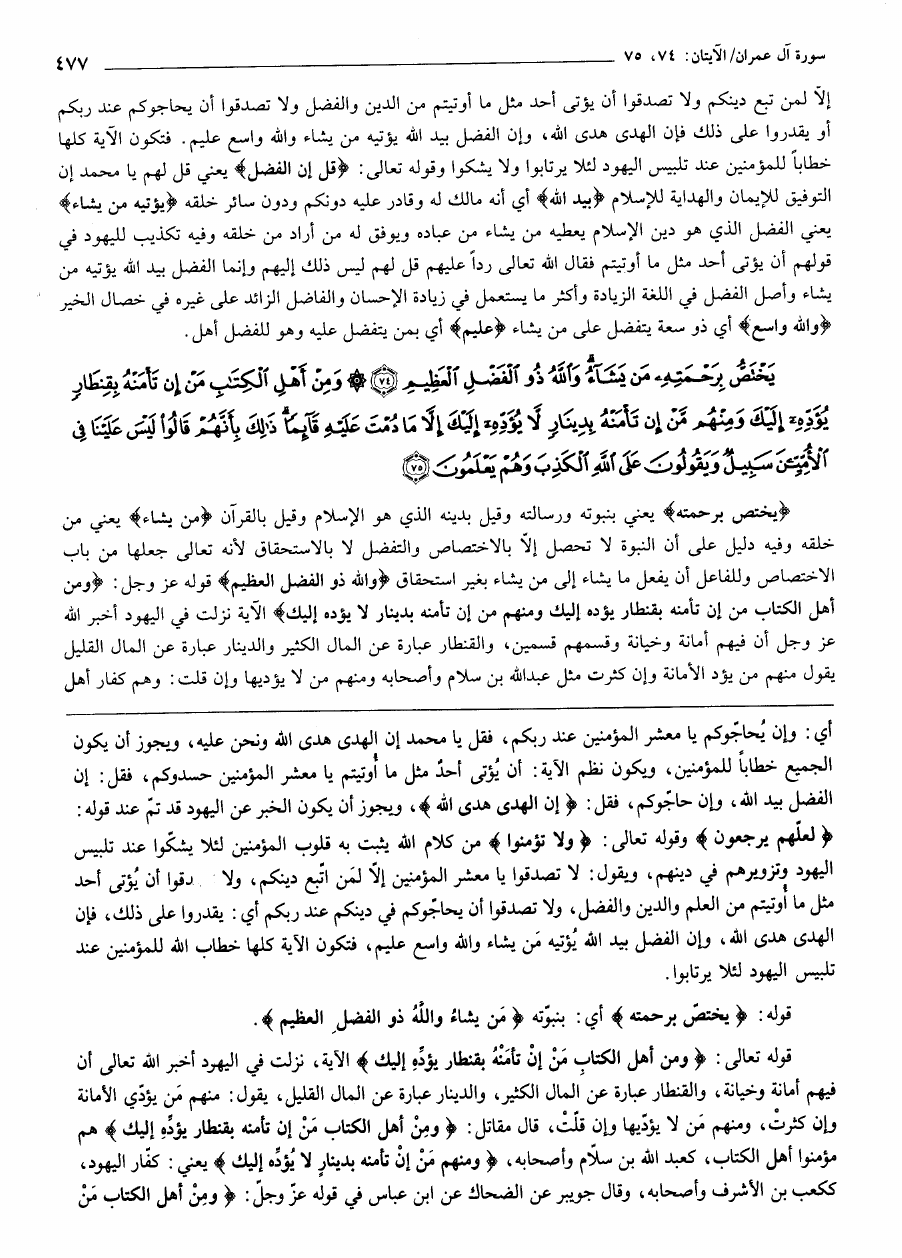 سورة آل عمران/ الآيتان: ٧٤، ٧٥ ٤٧٧
إلاّ لمن تبع دينكم ولا تصدقوا أن يؤتى أحد مثل ما أوتيتم من الدين والفضل ولا تصدقوا أن يحاجوكم عند ربكم
أو يقدروا على ذلك فإن الهدى هدى الله، وإن الفضل بيد الله يؤتيه من يشاء والله واسع عليم. فتكون الآية كلها
خطاباً للمؤمنين عند تلبيس اليهود لئلا يرتابوا ولا يشكوا وقوله تعالى: ﴿قل إن الفضل﴾ يعني قل لهم يا محمد إن
التوفيق للإيمان والهداية للإسلام ﴿بيد الله﴾ أي أنه مالك له وقادر عليه دونكم ودون سائر خلقه ﴿يؤتيه من يشاء﴾
يعني الفضل الذي هو دين الإسلام يعطيه من يشاء من عباده ويوفق له من أراد من خلقه وفيه تكذيب لليهود في
قولهم أن يؤتى أحد مثل ما أوتيتم فقال الله تعالى رداً عليهم قل لهم ليس ذلك إليهم وإنما الفضل بيد الله يؤتيه من
يشاء وأصل الفضل في اللغة الزيادة وأكثر ما يستعمل في زيادة الإحسان والفاضل الزائد على غيره في خصال الخير
﴿والله واسع﴾ أي ذو سعة يتفضل على من يشاء ﴿عليم﴾ أي بمن يتفضل عليه وهو للفضل أهل.
يَخْتَصُّ بِرَحْمَتِهِۦ مَن يَشَآءُ ۗ وَٱللَّهُ ذُو ٱلْفَضْلِ ٱلْعَظِيمِ ﴿٧٤﴾ ۞ وَمِنْ أَهْلِ ٱلْكِتَٰبِ مَنْ إِن تَأْمَنْهُ بِقِنطَارٍ
يُؤَدِّهِۦٓ إِلَيْكَ وَمِنْهُم مَّنْ إِن تَأْمَنْهُ بِدِينَارٍ لَّا يُؤَدِّهِۦٓ إِلَيْكَ إِلَّا مَا دُمْتَ عَلَيْهِ قَآئِمًا ۗ ذَٰلِكَ بِأَنَّهُمْ قَالُوا۟ لَيْسَ عَلَيْنَا فِى
ٱلْأُمِّيِّـۧنَ سَبِيلٌ وَيَقُولُونَ عَلَى ٱللَّهِ ٱلْكَذِبَ وَهُمْ يَعْلَمُونَ ﴿٧٥﴾
﴿يختص برحمته﴾ يعني بنبوته ورسالته وقيل بدينه الذي هو الإسلام وقيل بالقرآن ﴿من يشاء﴾ يعني من
خلقه وفيه دليل على أن النبوة لا تحصل إلاّ بالاختصاص والتفضل لا بالاستحقاق لأنه تعالى جعلها من باب
الاختصاص وللفاعل أن يفعل ما يشاء إلى من يشاء بغير استحقاق ﴿والله ذو الفضل العظيم﴾ قوله عز وجل: ﴿ومن
أهل الكتاب من إن تأمنه بقنطار يؤده إليك ومنهم من إن تأمنه بدينار لا يؤده إليك﴾ الآية نزلت في اليهود أخبر الله
عز وجل أن فيهم أمانة وخيانة وقسمهم قسمين، والقنطار عبارة عن المال الكثير والدينار عبارة عن المال القليل
يقول منهم من يؤد الأمانة وإن كثرت مثل عبدالله بن سلام وأصحابه ومنهم من لا يؤديها وإن قلت: وهم كفار أهل
أي: وإن يُحاجّوكم يا معشر المؤمنين عند ربكم، فقل يا محمد إن الهدى هدى الله ونحن عليه، ويجوز أن يكون
الجميع خطاباً للمؤمنين، ويكون نظم الآية: أن يُؤتى أحدّ مثل ما أُوتيتم يا معشر المؤمنين حسدوكم، فقل: إن
الفضل بيد الله، وإن حاجّوكم، فقل: ﴿ إن الهدى هدى الله ﴾، ويجوز أن يكون الخبر عن اليهود قد تمّ عند قوله:
﴿ لعلّهم يرجعون ﴾ وقوله تعالى: ﴿ ولا تؤمنوا ﴾ من كلام الله يثبت به قلوب المؤمنين لئلا يشكّوا عند تلبيس
اليهود وتزويرهم في دينهم، ويقول: لا تصدقوا يا معشر المؤمنين إلاّ لمَن اتّبع دينكم، ولا دقوا أن يُؤتى أحد
مثل ما أُوتيتم من العلم والدين والفضل، ولا تصدقوا أن يحاجّوكم في دينكم عند ربكم أي: يقدروا على ذلك، فإن
الهدى هدى الله، وإن الفضل بيد الله يُؤتيه مَن يشاء والله واسع عليم، فتكون الآية كلها خطاب الله للمؤمنين عند
تلبيس اليهود لئلا يرتابوا.
قوله: ﴿ يختصّ برحمته ﴾ أي: بنبوّته ﴿ مَن يشاءُ واللَّهُ ذو الفضل العظيم ﴾.
قوله تعالى: ﴿ ومن أهل الكتابِ مَنْ إنْ تأمَنْهُ بقنطار يؤدِّهِ إليك ﴾ الآية، نزلت في اليهود أخبر الله تعالى أن
فيهم أمانة وخيانة، والقنطار عبارة عن المال الكثير، والدينار عبارة عن المال القليل، يقول: منهم مَن يؤدّي الأمانة
وإن كثرتْ، ومنهم مَن لا يؤدّيها وإن قلّتْ، قال مقاتل: ﴿ ومِنْ أهل الكتاب مَنْ إن تأمنه بقنطار يؤدِّه إليك ﴾ هم
مؤمنوا أهل الكتاب، كعبد الله بن سلّام وأصحابه، ﴿ ومنهم مَنْ إنْ تأمنه بدينارٍ لا يُؤدِّه إليك ﴾ يعني: كفّار اليهود،
ككعب بن الأشرف وأصحابه، وقال جويبر عن الضحاك عن ابن عباس في قوله عزّ وجلّ: ﴿ ومِنْ أهل الكتاب مَنْ